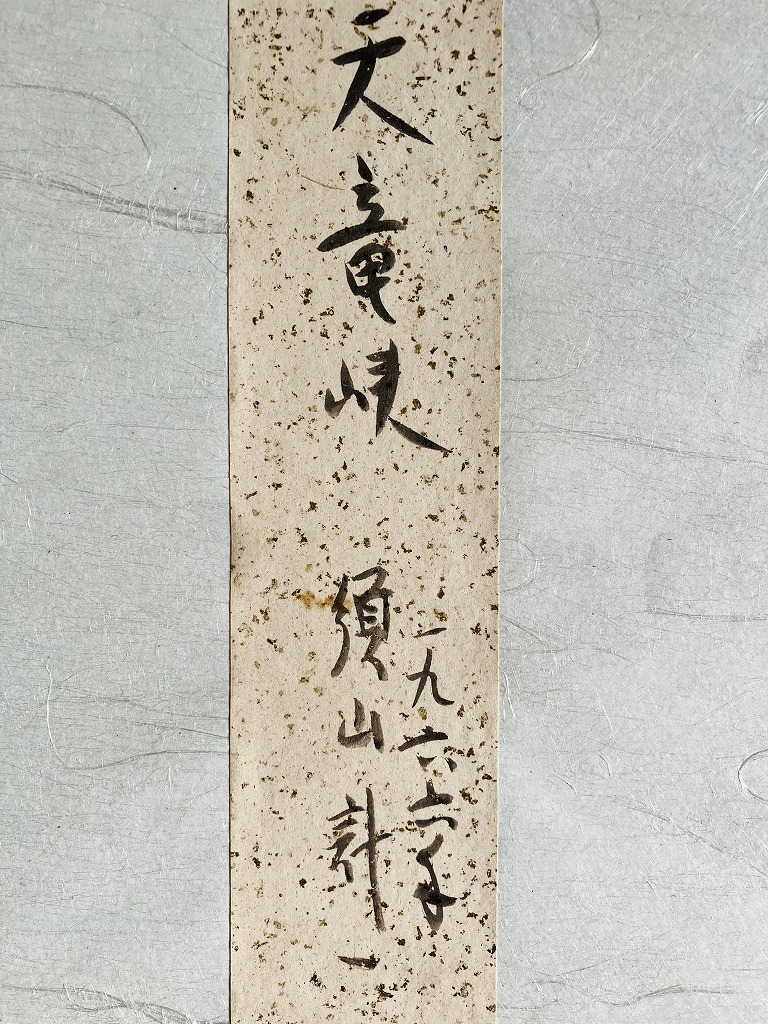 天竜峡
一九六六年
須山計一